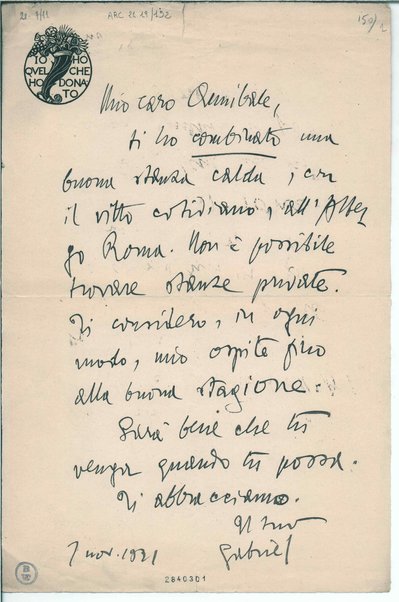 21-9/11
ARC 21.19/132
IO HO
QUEL CHE
HO DONA
TO
Mio caro Annibale,
ti ho combinato una
buona stanza calda, con
il vitto cotidiano, all'Alber
go Roma. Non è possibile
trovare stanze private.
Ti considero, in ogni
modo, mio ospite fino
alla buona stagione.
Sarà bene che tu
venga quando tu possa.
Ti abbracciamo.
Il tuo
7 nov. 1921 Gabriel
2840301